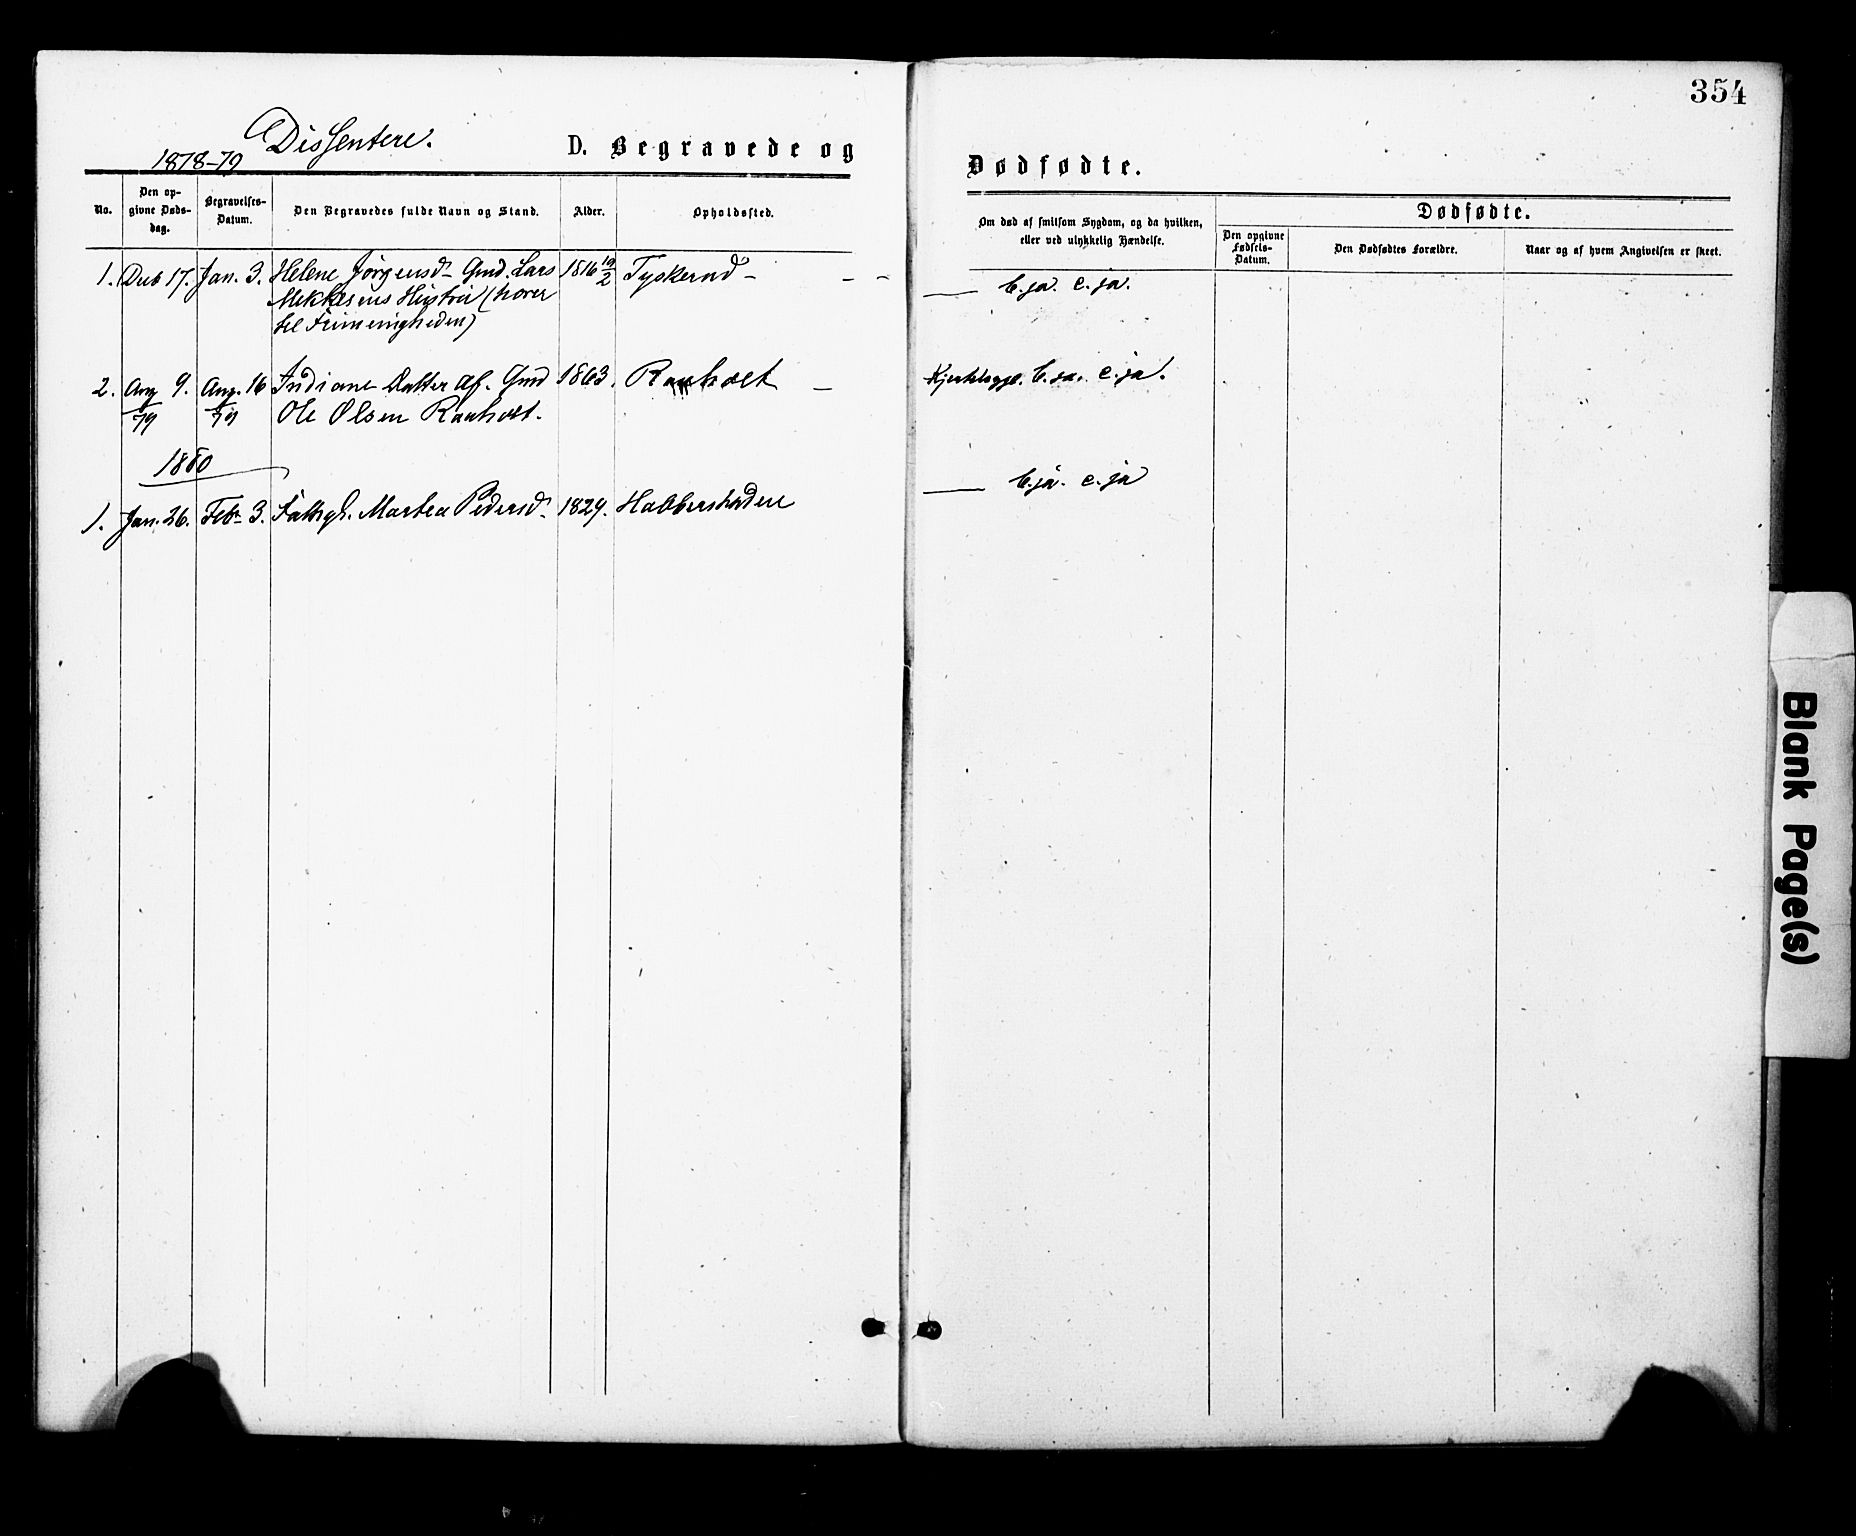 354
Dissentere.
1878-79
D. Begravede og
Dødfødte.
No.
Den op-
givne Døds-
dag.
Begravelses-
Datum.
Den Begravedes fulde Navn og Stand.
Alder.
Opholdssted.
Om død af smitsom Sygdom, og da hvilken,
eller ved ulykkelig Hændelse.
Dødfødte.
Den opgivne
Fødsels-
Datum.
Den Dødfødtes Forældre.
Naar og af hvem Angivelsen er skeet.
1. Deb 17. Jan. 3. Helene Jørgensd. Gmd. Lars 1816 19/2 Tyskerud - - - b. ja. c. ja.
Mikkelsens Hustru (hører
til Frimenigheden)
2. Aug 9. Aug. 16 Indiane Datter af. Gmd 1863. Raaholt - b. ja. c. ja.
79 79 Ole Olsen Raaholt.
1880
1. Jan. 26. Feb. 3. Fattigl. Marthea Pedersd. 1829. Habberstaden b. ja. c. ja
Blank Page(s)